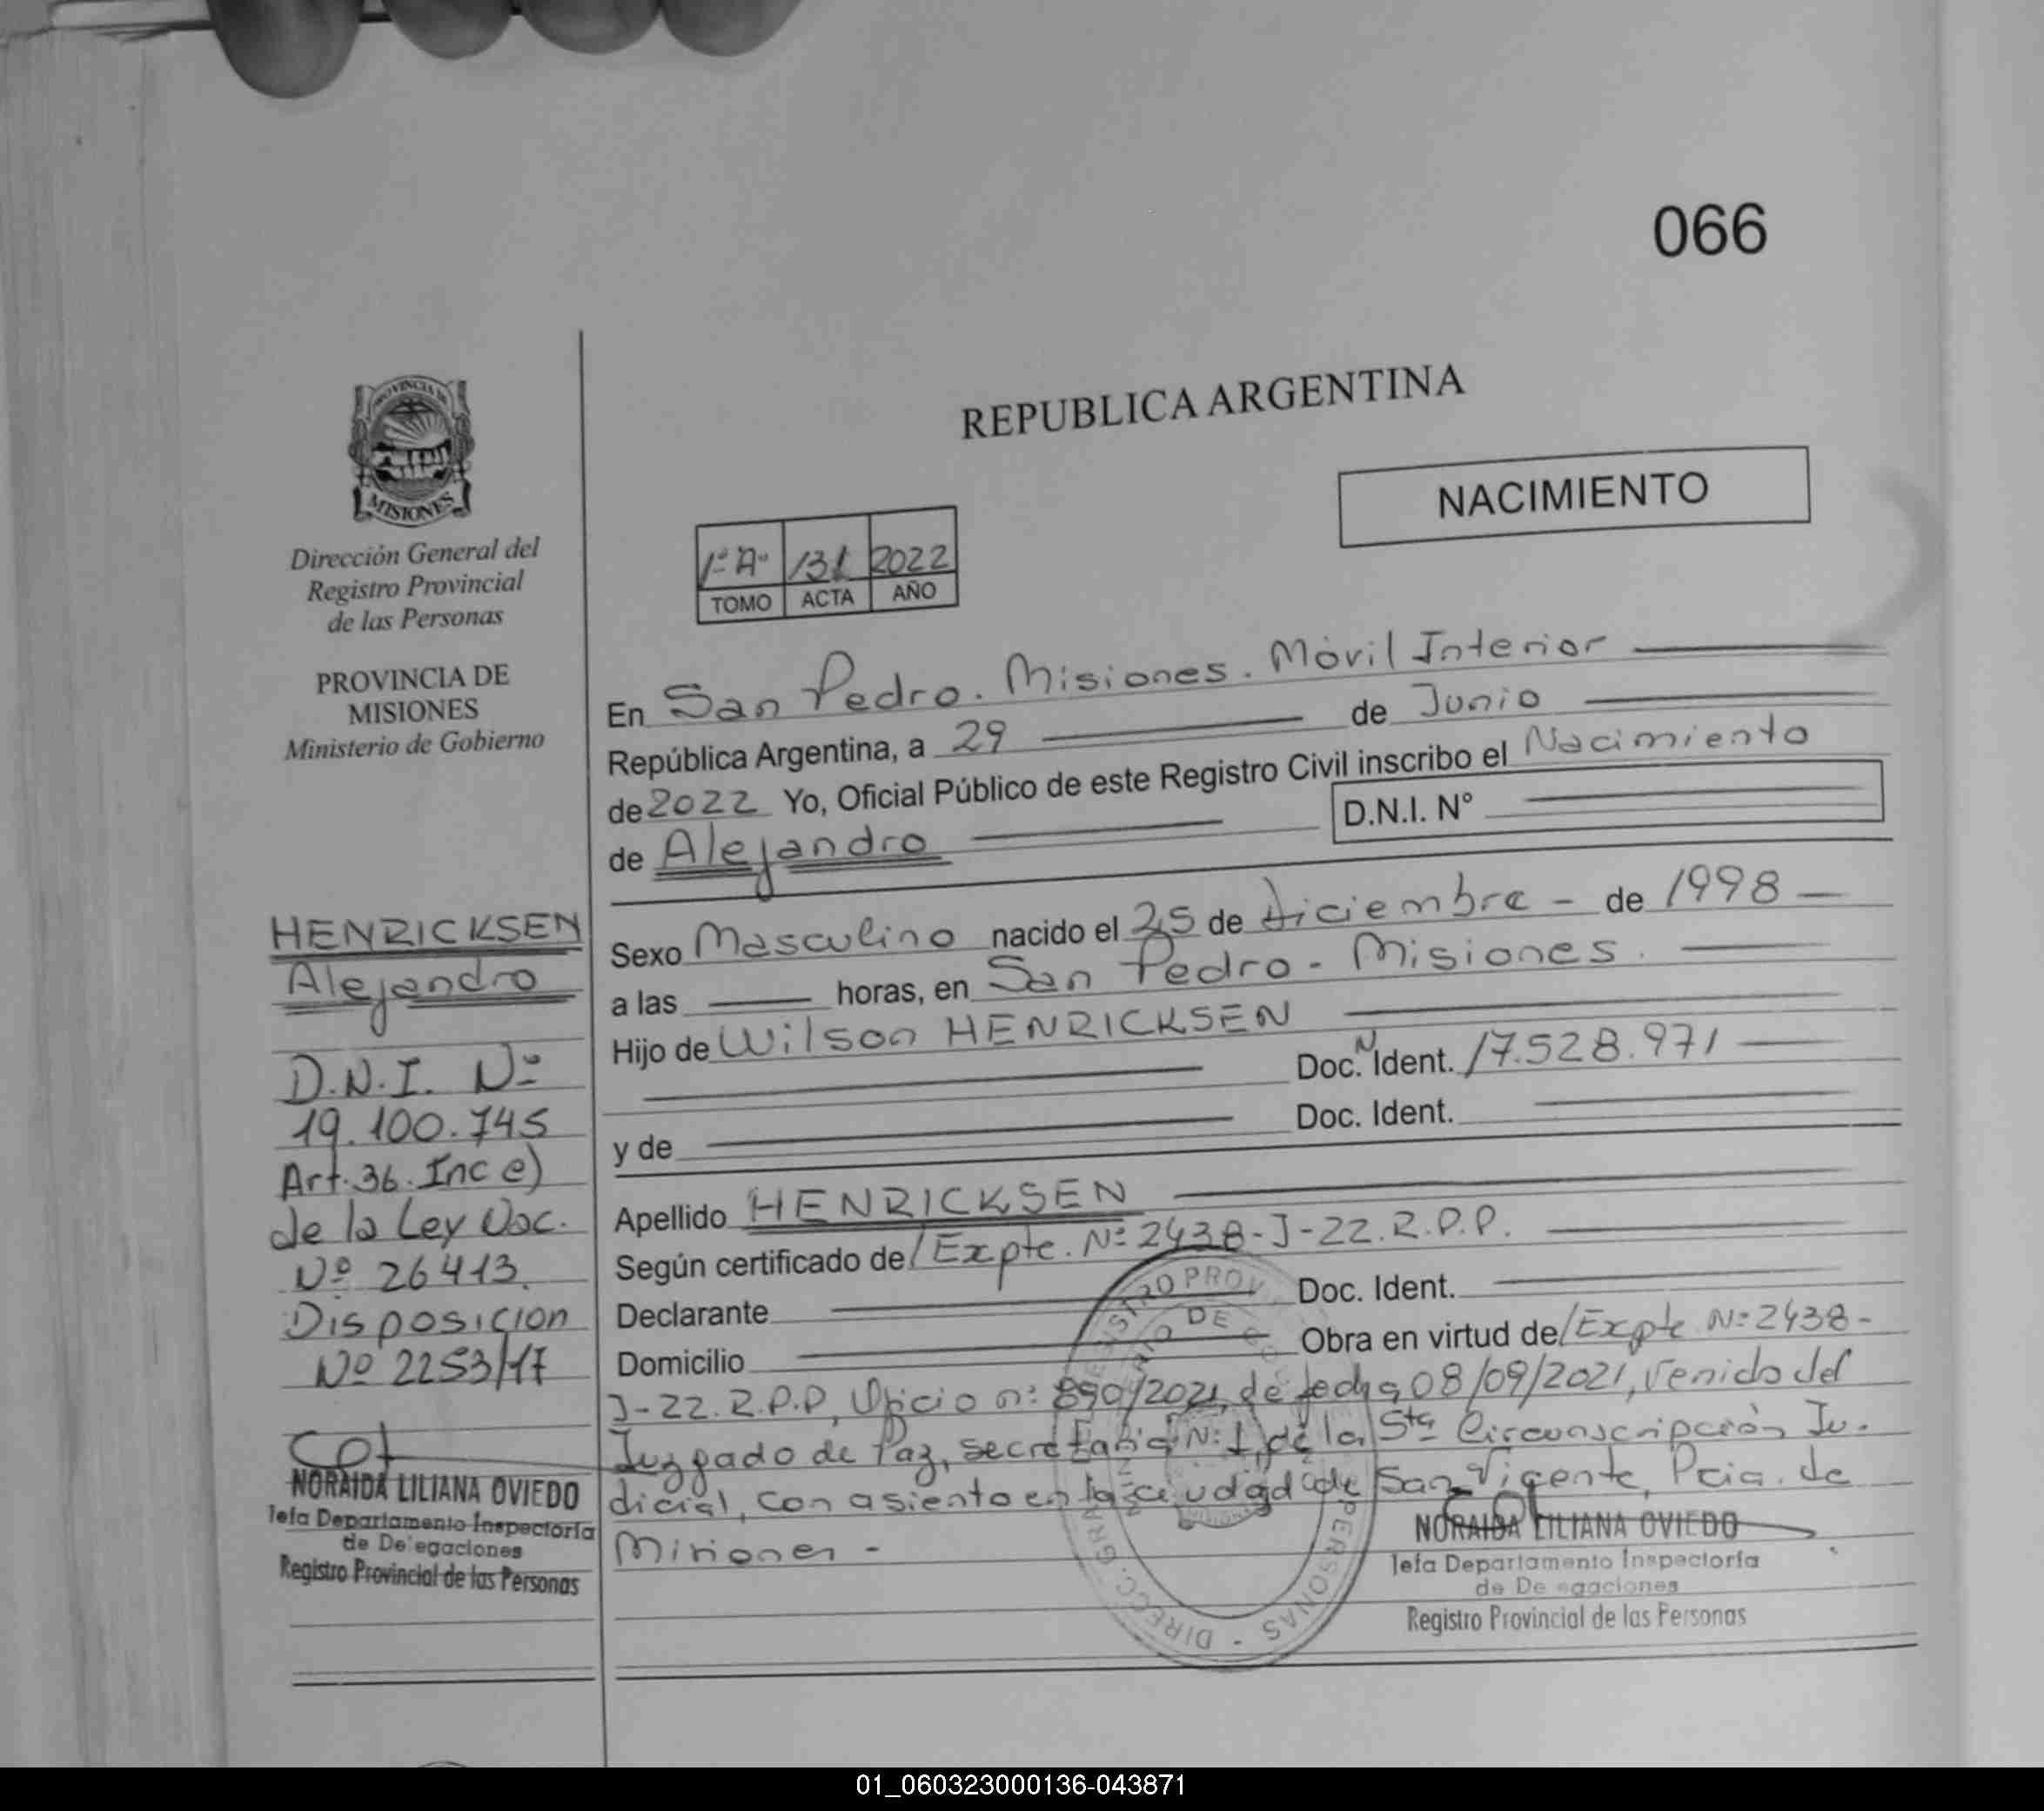 066
REPUBLICA ARGENTINA
NACIMIENTO
PROVINCIA DE
MISIONES
Dirección General del
Registro Provincial
de las Personas
PROVINCIA DE
MISIONES
Ministerio de Gobierno
1º A° 131 2022
TOMO ACTA AÑO
En San Pedro. Misiones. Móvil Interior
República Argentina, a 29 de Junio
de 2022 Yo, Oficial Público de este Registro Civil inscribo el Nacimiento
de Alejandro D.N.I. N°
Sexo Masculino nacido el 25 de diciembre - de 1998 -
a las horas, en San Pedro - Misiones.
Hijo de Wilson HENRICKSEN
Doc. N Ident. 17.528.971
y de Doc. Ident.
Apellido HENRICKSEN
Según certificado de/ Expte. Nº 2438-J-22.R.P.P.
Declarante Doc. Ident.
Domicilio Obra en virtud de/Expte Nº 2438-
J-22.R.P.P, Oficio nº 890/2021, de fecha 08/09/2021, venido del
Juzgado de Paz, secretaria Nº 1, de la 5ta Circunscripción Ju-
dicial, con asiento en la ciudad de San Vicente, Pcia. de
Misiones -
HENRICKSEN
Alejandro
D.N.I. Nº
19.100.745
Art. 36. Inc e)
de la Ley Nac.
Nº 26413.
Disposicion
Nº 2253/17
NORAIDA LILIANA OVIEDO
Jefa Departamento Inspectoría
de Delegaciones
Registro Provincial de las Personas
NORAIDA LILIANA OVIEDO
Jefa Departamento Inspectoría
de De egaciones
Registro Provincial de las Personas
01_060323000136-043871